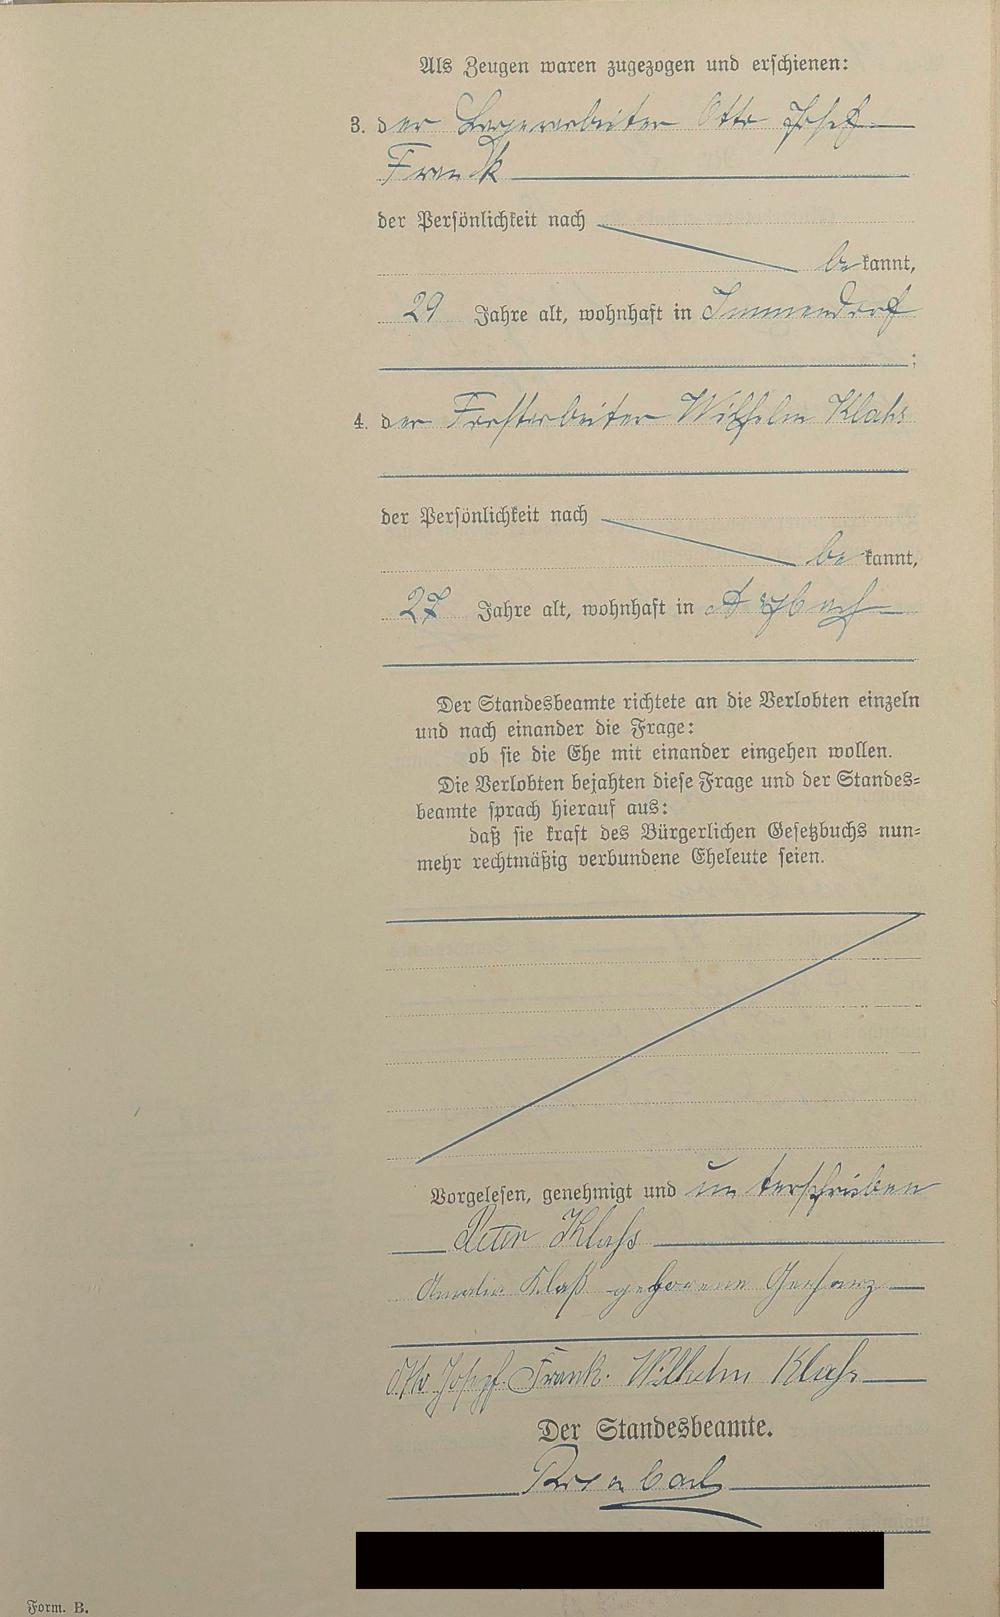 Als Zeugen waren zugezogen und erschienen:
3. der Lagerarbeiter Otto Josef
Frank
der Persönlichkeit nach
be kannt,
29 Jahre alt, wohnhaft in Immendorf
;
4. der Forstarbeiter Wilhelm Klahs
der Persönlichkeit nach
be kannt,
27 Jahre alt, wohnhaft in Arzbach
Der Standesbeamte richtete an die Verlobten einzeln
und nach einander die Frage:
ob sie die Ehe mit einander eingehen wollen.
Die Verlobten bejahten diese Frage und der Standes=
beamte sprach hierauf aus:
daß sie kraft des Bürgerlichen Gesetzbuchs nun=
mehr rechtmäßig verbundene Eheleute seien.
Vorgelesen, genehmigt und unterschrieben
Peter Klahs
Amalie Klaß geborene Gerharz
Otto Josef Frank. Wilhelm Klahs
Der Standesbeamte.
Form. B.